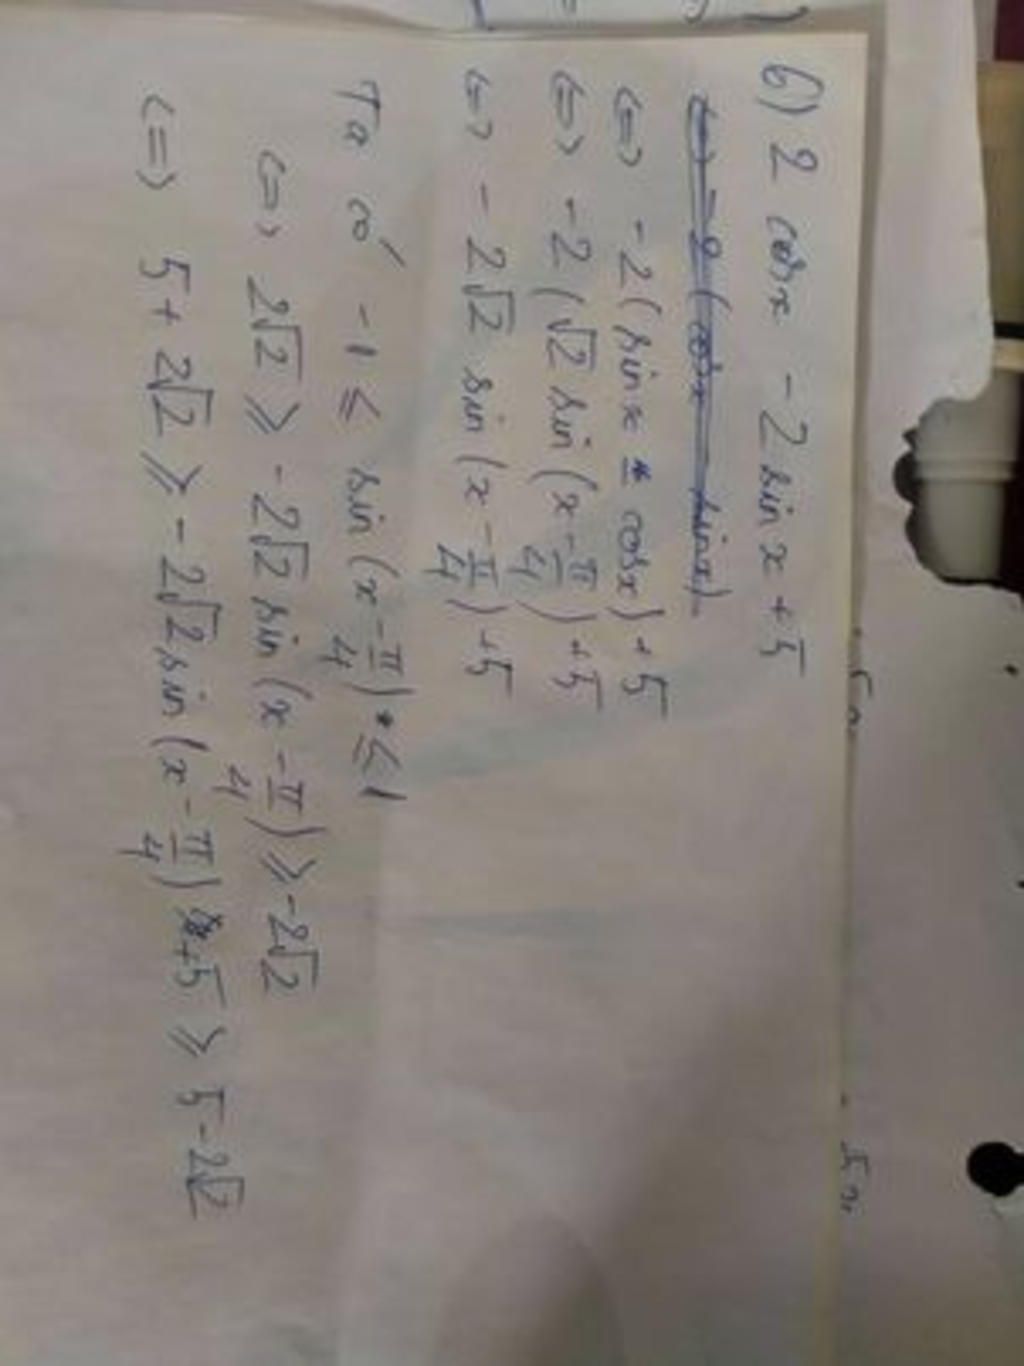 6) 2 cosx - 2 sin x + 5
<=> - 2 (cosx - sinx)
<=> -2 ( sin x - cosx) + 5
<=> -2 ( √2 sin ( x - π/4 ) ) + 5
<=> - 2√2 sin ( x - π/4 ) + 5
Ta có -1 ≤ sin ( x - π/4 ) ≤ 1
<=> 2√2 ≥ - 2√2 sin ( x - π/4 ) ≥ -2√2
<=> 5 + 2√2 ≥ - 2√2 sin ( x - π/4 ) + 5 ≥ 5 - 2√2